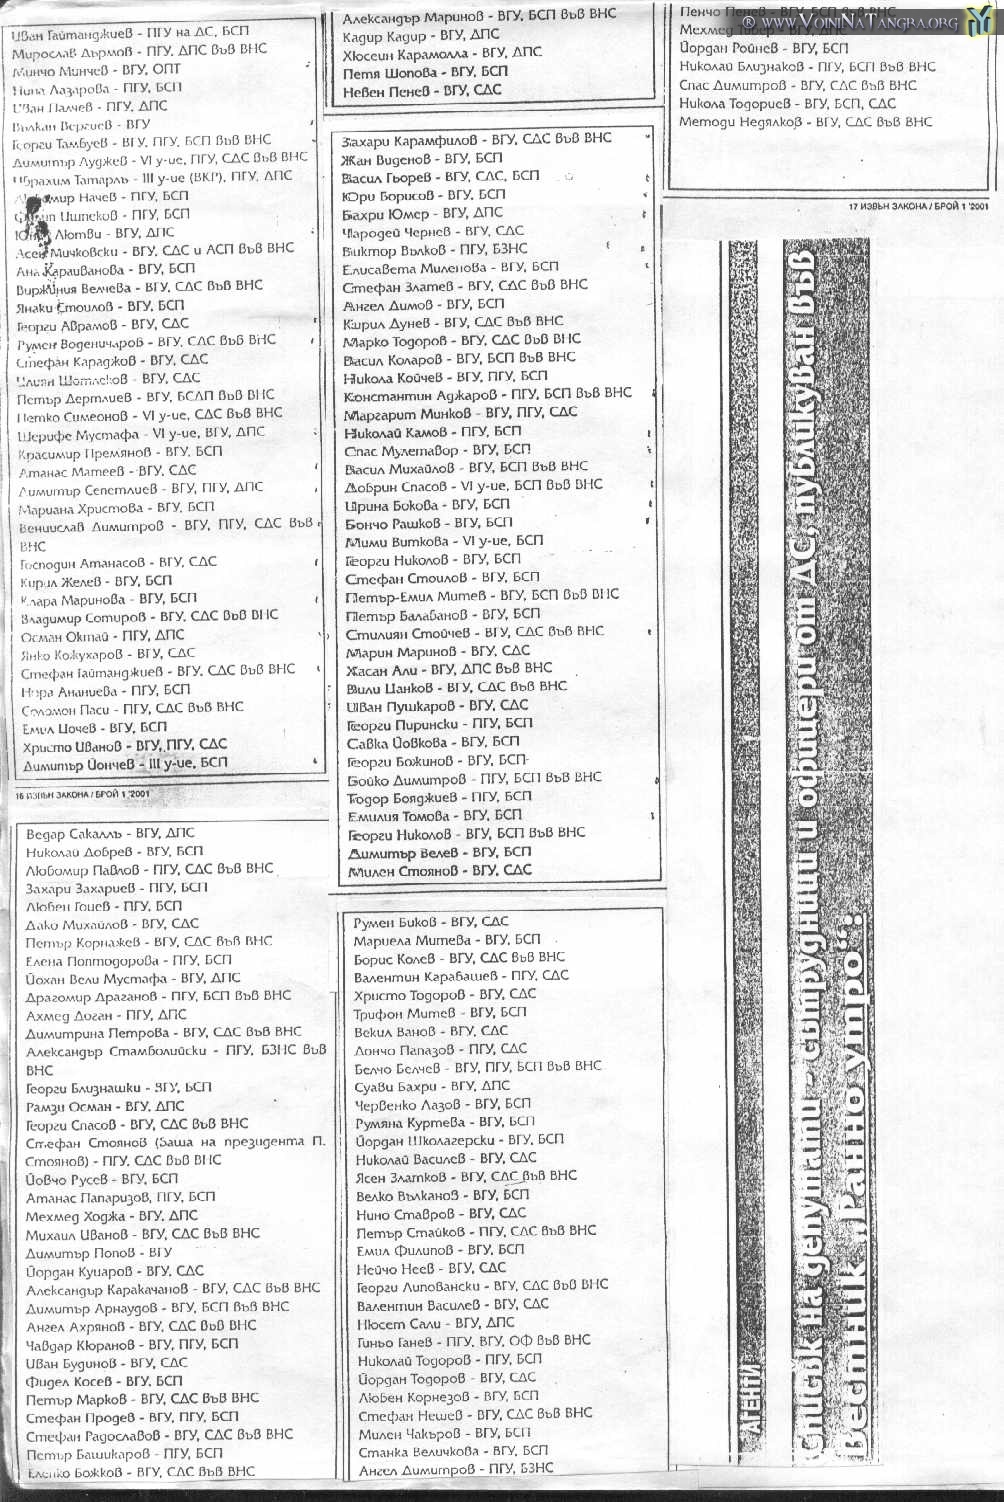 Иван Гайтанджиев - ПГУ на ДС, БСП
Мирослав Дърмов - ПГУ, ДПС във ВНС
Минчо Минчев - ВГУ, ОПТ
Нина Лазарова - ПГУ, БСП
Иван Палчев - ПГУ, ДПС
Вълкан Вергиев - ВГУ
Георги Тамбуев - ВГУ, ПГУ, БСП във ВНС
Димитър Луджев - VI у-ие, ПГУ, СДС във ВНС
Ибрахим Татарлъ - III у-ие (ВКР), ПГУ, ДПС
Начев - ПГУ, БСП
Филип Ишпеков - ПГУ, БСП
Лютви - ВГУ, ДПС
Асен Мичковски - ВГУ, СДС и АСП във ВНС
Ана Караиванова - ВГУ, БСП
Виржиния Велчева - ВГУ, СДС във ВНС
Янаки Стоилов - ВГУ, БСП
Георги Аврамов - ВГУ, СДС
Румен Воденичаров - ВГУ, СДС във ВНС
Стефан Караджов - ВГУ, СДС
Илиян Шотлеков - ВГУ, СДС
Петър Дертлиев - ВГУ, БСДП във ВНС
Петко Симеонов - VI у-ие, СДС във ВНС
Шерифе Мустафа - VI у-ие, ВГУ, ДПС
Красимир Премянов - ВГУ, БСП
Атанас Матеев - ВГУ, СДС
Димитър Сепетлиев - ВГУ, ПГУ, ДПС
Мариана Христова - ВГУ, БСП
Венцислав Димитров - ВГУ, ПГУ, СДС във
ВНС
Господин Атанасов - ВГУ, СДС
Кирил Желев - ВГУ, БСП
Клара Маринова - ВГУ, БСП
Владимир Сотиров - ВГУ, СДС във ВНС
Осман Октай - ПГУ, ДПС
Янко Кожухаров - ВГУ, СДС
Стефан Гайтанджиев - ВГУ, СДС във ВНС
Нора Ананиева - ПГУ, БСП
Соломон Паси - ПГУ, СДС във ВНС
Емил Цочев - ВГУ, БСП
Христо Иванов - ВГУ, ПГУ, СДС
Димитър Йончев - III у-ие, БСП
16 ИЗВЪН ЗАКОНА / БРОЙ 1 '2001
Ведар Сакаллъ - ВГУ, ДПС
Николай Добрев - ВГУ, БСП
Любомир Павлов - ПГУ, СДС във ВНС
Захари Захариев - ПГУ, БСП
Любен Гоцев - ПГУ, БСП
Дако Михайлов - ВГУ, СДС
Петър Корнажев - ВГУ, СДС във ВНС
Елена Поптодорова - ПГУ, БСП
Йохан Вели Мустафа - ВГУ, ДПС
Драгомир Драганов - ПГУ, БСП във ВНС
Ахмед Доган - ПГУ, ДПС
Димитрина Петрова - ВГУ, СДС във ВНС
Александър Стамболийски - ПГУ, БЗНС във
ВНС
Георги Близнашки - ВГУ, БСП
Рамзи Осман - ВГУ, ДПС
Георги Спасов - ВГУ, СДС във ВНС
Стефан Стоянов (баща на президента П.
Стоянов) - ПГУ, СДС във ВНС
Йовчо Русев - ВГУ, БСП
Атанас Папаризов, ПГУ, БСП
Мехмед Ходжа - ВГУ, ДПС
Михаил Иванов - ВГУ, СДС във ВНС
Димитър Попов - ВГУ
Йордан Куцаров - ВГУ, СДС
Александир Каракачанов - ВГУ, СДС във ВНС
Димитър Арнаудов - ВГУ, БСП във ВНС
Ангел Ахрянов - ВГУ, СДС във ВНС
Чавдар Кюранов - ПГУ, ВГУ, БСП
Иван Будинов - ВГУ, СДС
Фидел Косев - ВГУ, БСП
Петър Марков - ВГУ, СДС във ВНС
Стефан Продев - ВГУ, ПГУ, БСП
Стефан Радославов - ВГУ, СДС във ВНС
Петър Башикаров - ПГУ, БСП
Еленко Божков - ВГУ, СДС във ВНС
Александър Маринов - ВГУ, БСП във ВНС
Кадир Кадир - ВГУ, ДПС
Хюсеин Карамолла - ВГУ, ДПС
Петя Шопова - ВГУ, БСП
Невен Пенев - ВГУ, СДС
Захари Карамфилов - ВГУ, СДС във ВНС
Жан Виденов - ВГУ, БСП
Васил Гьорев - ВГУ, СДС, БСП
Юри Борисов - ВГУ, БСП
Бахри Юмер - ВГУ, ДПС
Чародей Чернев - ВГУ, СДС
Виктор Вълков - ПГУ, БЗНС
Елисавета Миленова - ВГУ, БСП
Стефан Златев - ВГУ, СДС във ВНС
Ангел Димов - ВГУ, БСП
Кирил Дунев - ВГУ, СДС във ВНС
Марко Тодоров - ВГУ, СДС във ВНС
Васил Коларов - ВГУ, БСП във ВНС
Никола Койчев - ВГУ, ПГУ, БСП
Константин Аджаров - ПГУ, БСП във ВНС
Маргарит Минков - ВГУ, ПГУ, СДС
Николай Камов - ПГУ, БСП
Спас Мулетаров - ВГУ, БСП
Васил Михайлов - ВГУ, БСП във ВНС
Добрин Спасов - VI у-ие, БСП във ВНС
Ирина Бокова - ВГУ, БСП
Бончо Рашков - ВГУ, БСП
Мими Виткова - VI у-ие, БСП
Георги Николов - ВГУ, БСП
Стефан Стоилов - ВГУ, БСП
Петър-Емил Митев - ВГУ, БСП във ВНС
Петър Балабанов - ВГУ, БСП
Стилиян Стойчев - ВГУ, СДС във ВНС
Марин Маринов - ВГУ, СДС
Хасан Али - ВГУ, ДПС във ВНС
Вили Цанков - ВГУ, СДС във ВНС
Иван Пушкаров - ВГУ, СДС
Георги Пирински - ПГУ, БСП
Савка Йовкова - ВГУ, БСП
Георги Божинов - ВГУ, БСП
Бойко Димитров - ПГУ, БСП във ВНС
Тодор Бояджиев - ПГУ, БСП
Емилия Томова - ВГУ, БСП
Георги Николов - ВГУ, БСП във ВНС
Димитър Велев - ВГУ, БСП
Милен Стоянов - ВГУ, СДС
Румен Биков - ВГУ, СДС
Мариела Митева - ВГУ, БСП
Борис Колев - ВГУ, СДС във ВНС
Валентин Карабашев - ПГУ, СДС
Христо Тодоров - ВГУ, СДС
Трифон Митев - ВГУ, БСП
Векил Ванов - ВГУ, СДС
Дончо Папазов - ПГУ, СДС
Белчо Белчев - ВГУ, ПГУ, БСП във ВНС
Суави Бахри - ВГУ, ДПС
Червенко Лазов - ВГУ, БСП
Румяна Куртева - ВГУ, БСП
Йордан Школагерски - ВГУ, БСП
Николай Василев - ВГУ, СДС
Ясен Златков - ВГУ, СДС във ВНС
Велко Вълканов - ВГУ, БСП
Нино Ставров - ВГУ, СДС
Петър Стайков - ПГУ, СДС във ВНС
Емил Филипов - ВГУ, БСП
Нейчо Неев - ВГУ, СДС
Георги Липовански - ВГУ, СДС във ВНС
Валентин Василев - ВГУ, СДС
Нюсет Сали - ВГУ, ДПС
Гиньо Ганев - ПГУ, ВГУ, ОФ във ВНС
Николай Тодоров - ПГУ, БСП
Йордан Тодоров - ВГУ, СДС
Любен Корнезов - ВГУ, БСП
Стефан Нешев - ВГУ, СДС във ВНС
Милен Чакъров - ВГУ, БСП
Станка Величкова - ВГУ, БСП
Ангел Димитров - ПГУ, БЗНС
© www.VoiniNaTangra.org
Пенчо Пенев - ВГУ, БСП
Мехмед - ВГУ, ДПС
Йордан Ройнев - ВГУ, БСП
Николай Близнаков - ПГУ, БСП във ВНС
Спас Димитров - ВГУ, СДС във ВНС
Никола Тодориев - ВГУ, БСП, СДС
Методи Недялков - ВГУ, СДС във ВНС
17 ИЗВЪН ЗАКОНА / БРОЙ 1 '2001
АГЕНТИ
Списък на депутати - сътрудници и офицери от ДС, публикуван във
Вестник „Ранно утро“: